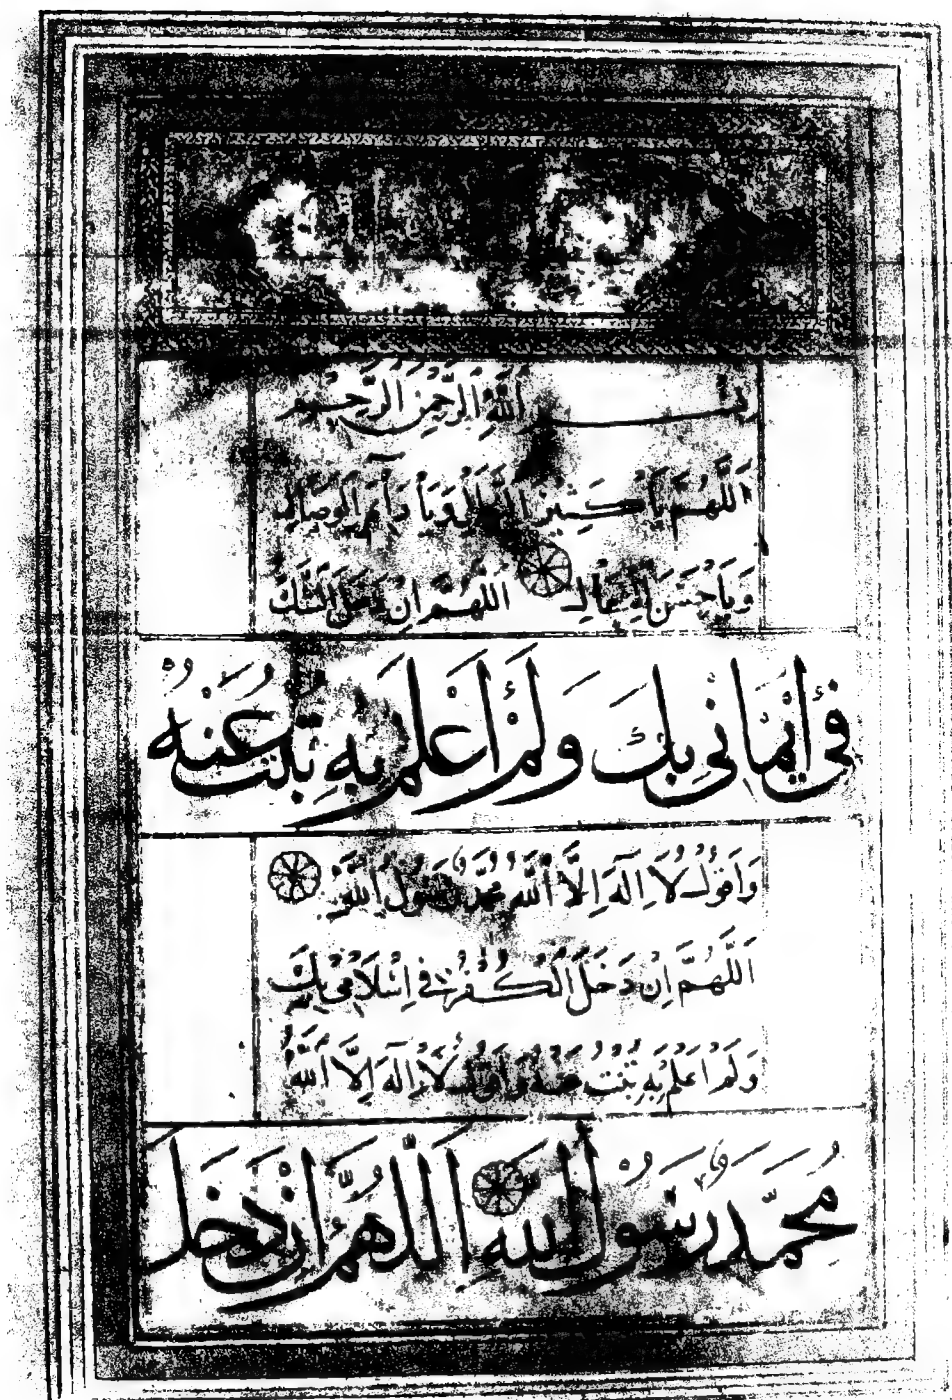 بِسْمِ اللَّهِ الرَّحْمٰنِ الرَّحِيْمِ
اَللّٰهُمَّ يَا كَثِيْرَ النَّوَالِ وَيَا دَائِمَ الْوِصَالِ
وَيَا حُسْنَ الْفِعَالِ اَللّٰهُمَّ اِنْ دَخَلَ الشَّكُّ
فِيْ اِيْمَانِيْ بِكَ وَلَمْ اَعْلَمْ بِهِ تُبْتُ عَنْهُ
وَاَقُوْلُ لَا اِلٰهَ اِلَّا اللّٰهُ مُحَمَّدٌ رَسُوْلُ اللّٰهِ
اَللّٰهُمَّ اِنْ دَخَلَ الْكُفْرُ فِيْ اِسْلَامِيْ بِكَ
وَلَمْ اَعْلَمْ بِهِ تُبْتُ عَنْهُ وَاَقُوْلُ لَا اِلٰهَ اِلَّا اللّٰهُ
مُحَمَّدٌ رَسُوْلُ اللّٰهِ اَللّٰهُمَّ اِنْ دَخَلَ